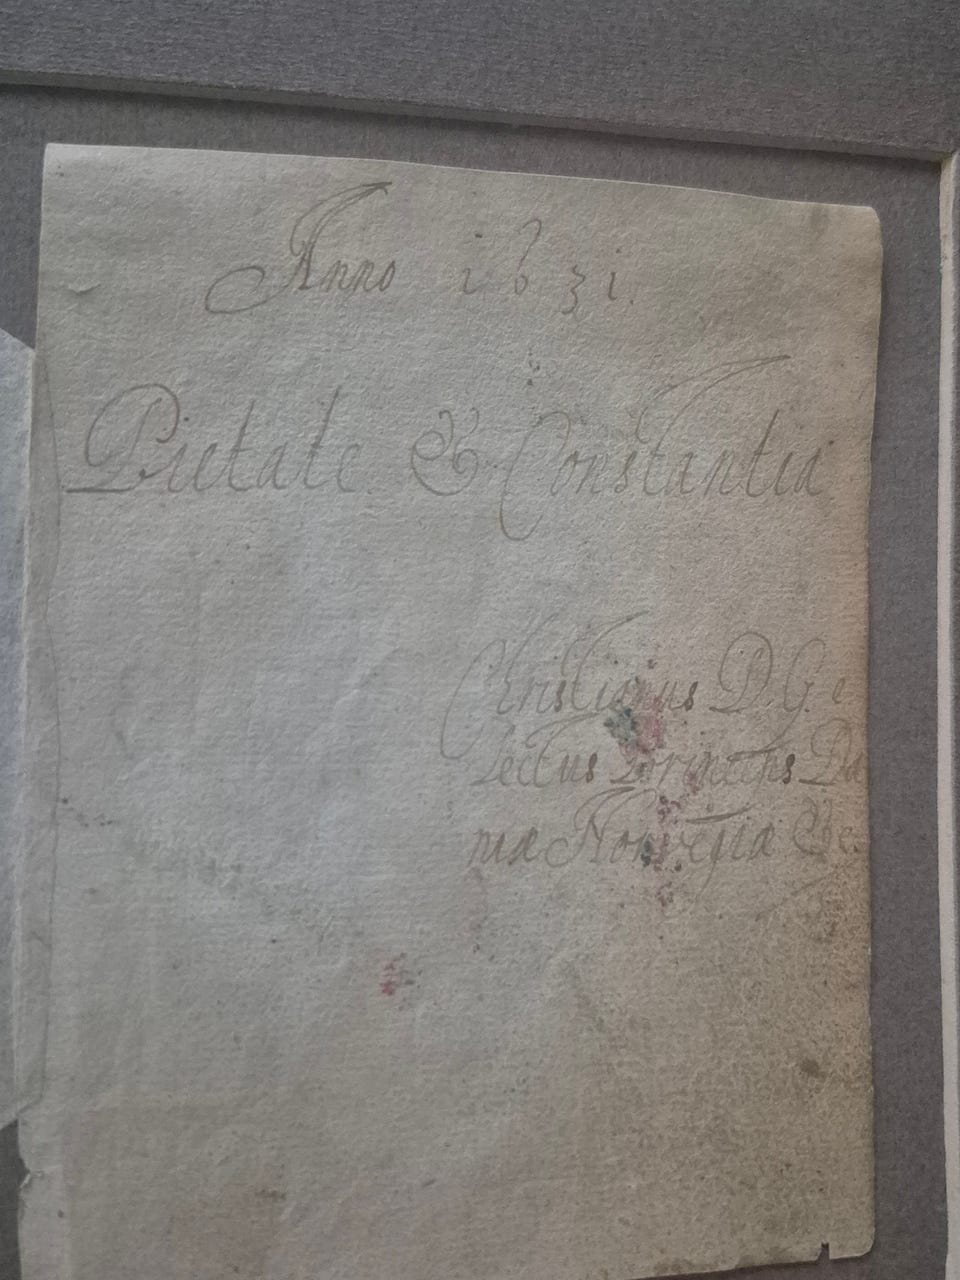 Anno 1631.
Pietate & Constantia
Christianus D. G. e
lectus Princeps Da
niæ Norvegiæ &c.